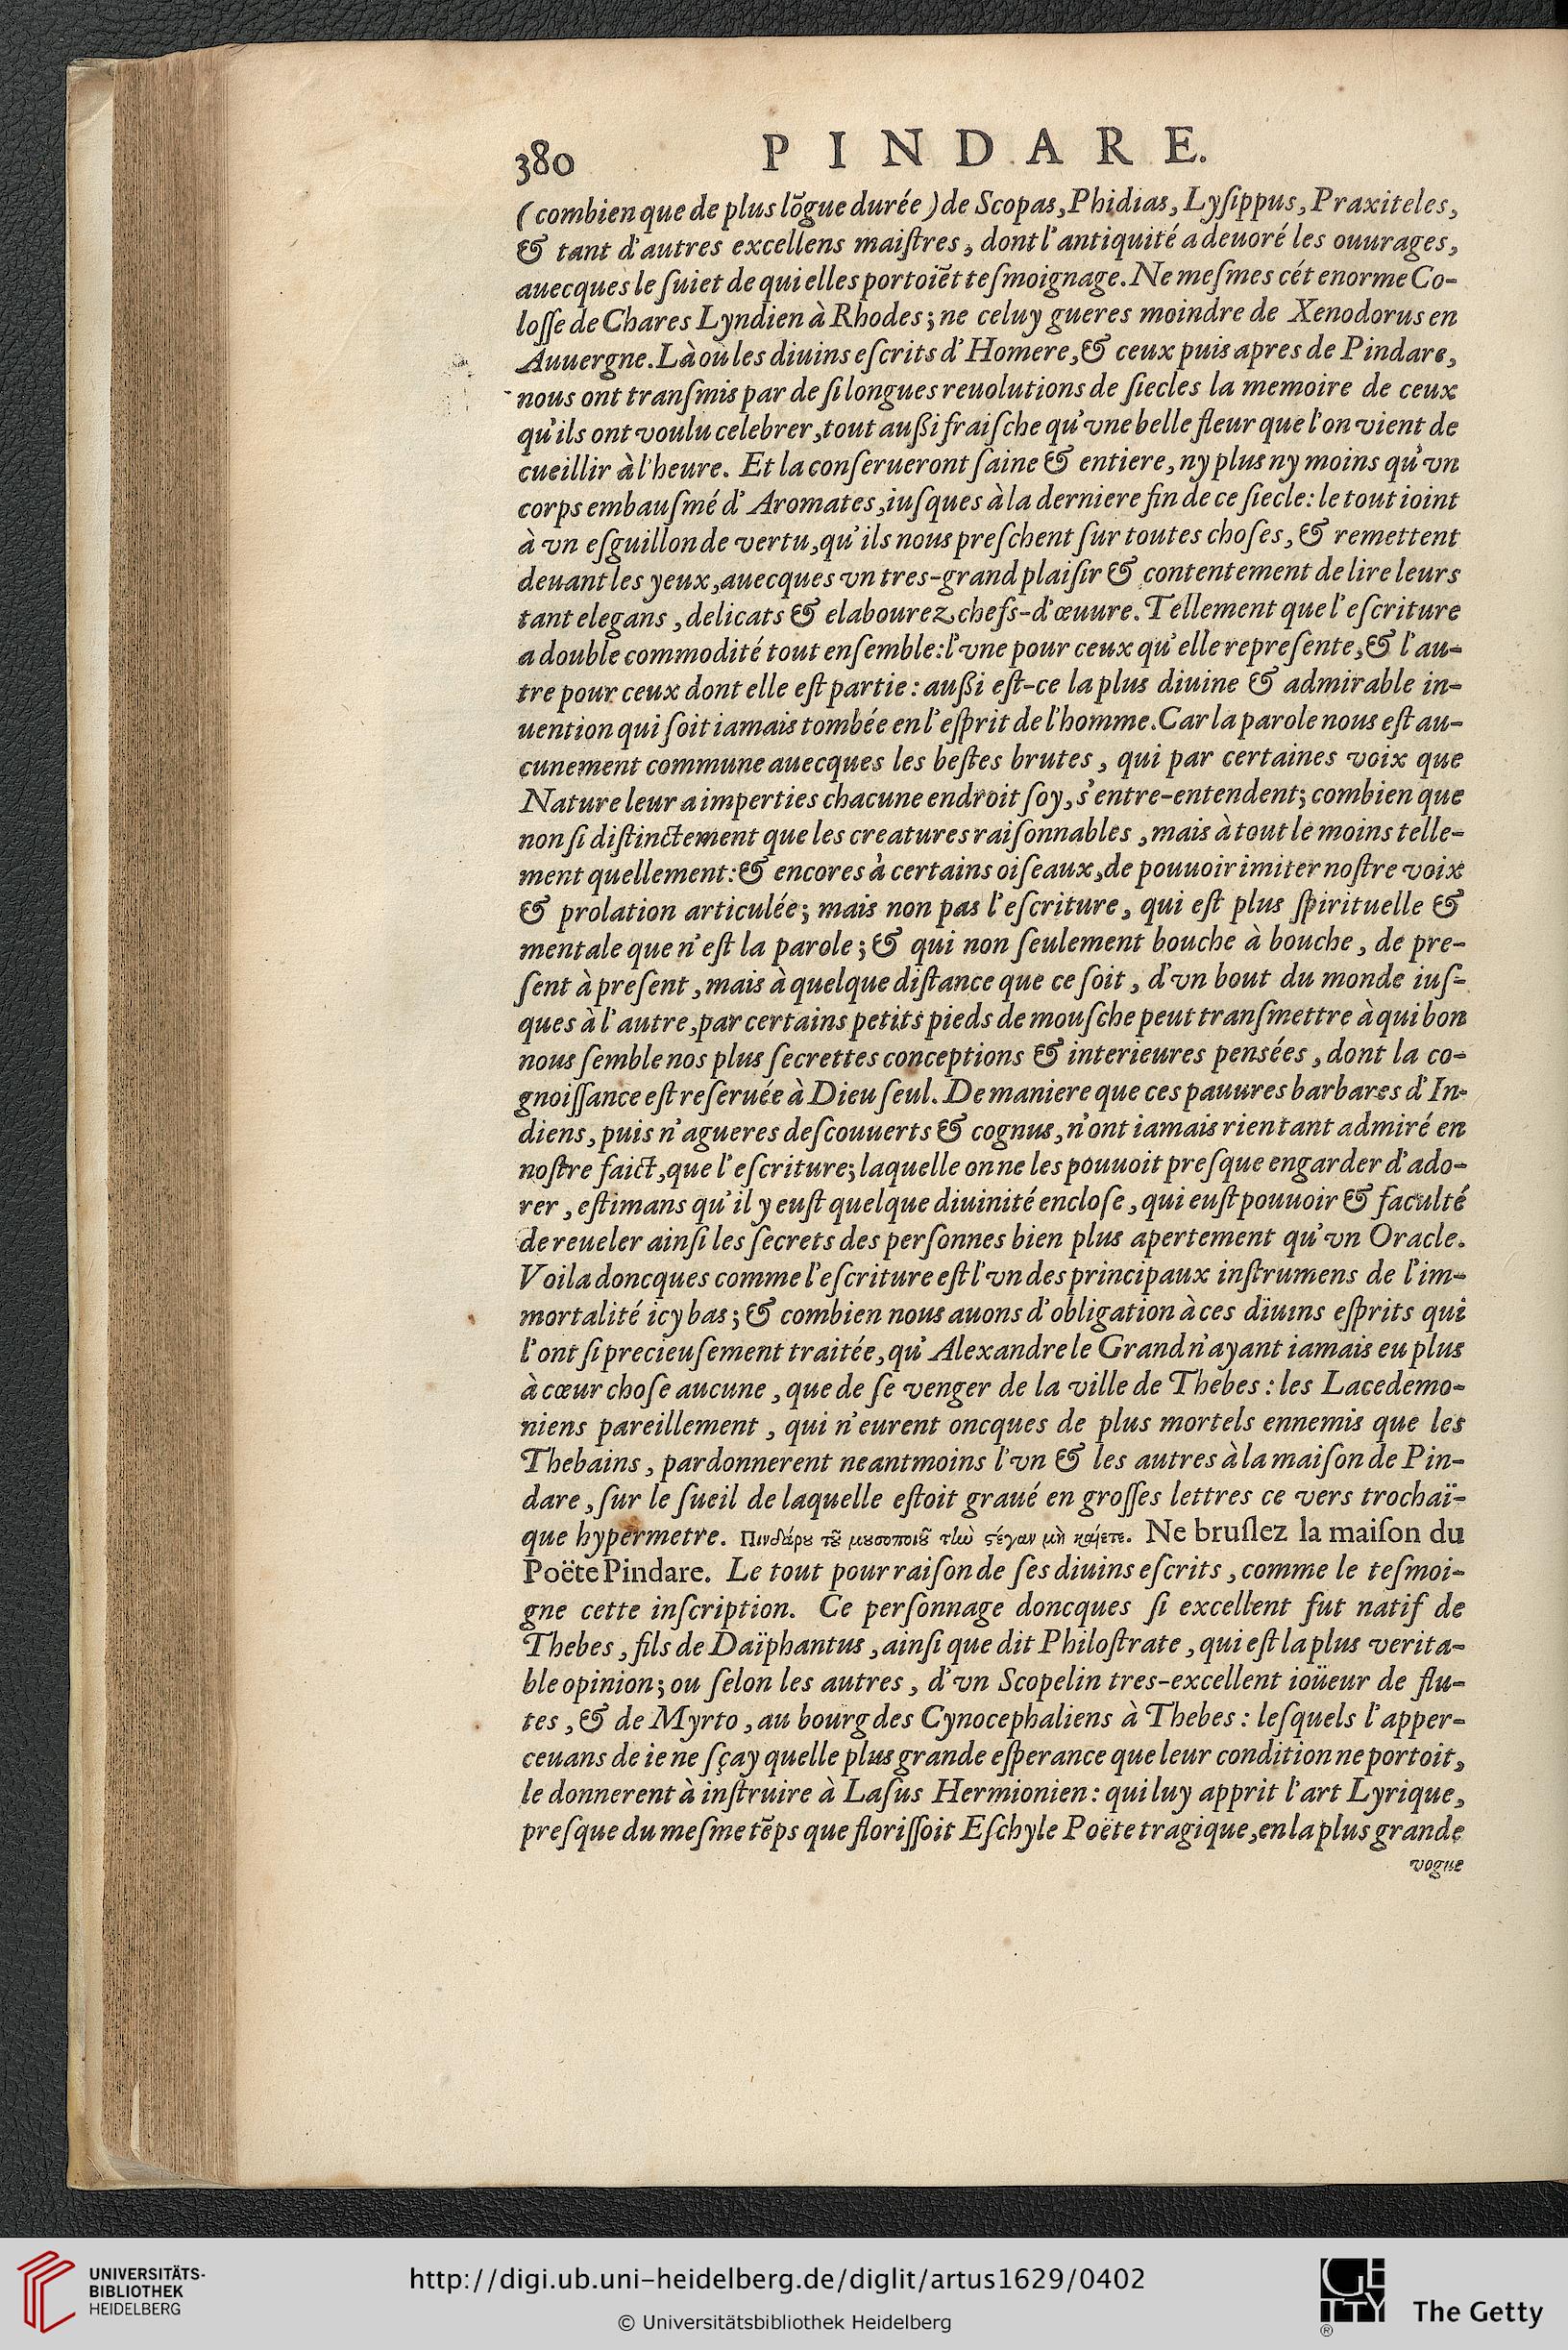 380 PINDARE.
(combien que de plus lõgue durée) de Scopas, Phidias, Lyſippus, Praxiteles,
& tant d'autres excellens maiſtres, dont l'antiquité a deuoré les ouurages,
auecques le ſuiet de qui elles portoiẽt teſmoignage. Ne meſmes cét enorme Co-
loſſe de Chares Lyndien à Rhodes; ne celuy gueres moindre de Xenodorus en
Auuergne. Là où les diuins eſcrits d'Homere, & ceux puis apres de Pindare,
nous ont tranſmis par de ſi longues reuolutions de ſiecles la memoire de ceux
qu'ils ont voulu celebrer, tout auſſi fraiſche qu'vne belle fleur que l'on vient de
cueillir à l'heure. Et la conſerueront ſaine & entiere, ny plus ny moins qu'vn
corps embauſmé d'Aromates, iuſques à la derniere fin de ce ſiecle: le tout ioint
à vn eſguillon de vertu, qu'ils nous preſchent ſur toutes choſes, & remettent
deuant les yeux, auecques vn tres-grand plaiſir & contentement de lire leurs
tant elegans, delicats & elabourez chefs-d'œuure. Tellement que l'eſcriture
a double commodité tout enſemble: l'vne pour ceux qu'elle repreſente, & l'au-
tre pour ceux dont elle eſt partie: auſſi eſt-ce la plus diuine & admirable in-
uention qui ſoit iamais tombée en l'eſprit de l'homme. Car la parole nous eſt au-
cunement commune auecques les beſtes brutes, qui par certaines voix que
Nature leur a imperties chacune endroit ſoy, s'entre-entendent; combien que
non ſi diſtinctement que les creatures raiſonnables, mais à tout le moins telle-
ment quellement: & encores à certains oiſeaux, de pouuoir imiter noſtre voix
& prolation articulée; mais non pas l'eſcriture, qui eſt plus ſpirituelle &
mentale que n'eſt la parole; & qui non ſeulement bouche à bouche, de pre-
ſent à preſent, mais à quelque diſtance que ce ſoit, d'vn bout du monde iuſ-
ques à l'autre, par certains petits pieds de mouſche peut tranſmettre à qui bon
nous ſemble nos plus ſecrettes conceptions & interieures penſées, dont la co-
gnoiſſance eſt reſeruée à Dieu ſeul. De maniere que ces pauures barbares d'In-
diens, puis n'agueres deſcouuerts & cognus, n'ont iamais rien tant admiré en
noſtre faict, que l'eſcriture; laquelle on ne les pouuoit preſque engarder d'ado-
rer, eſtimans qu'il y euſt quelque diuinité encloſe, qui euſt pouuoir & faculté
de reueler ainſi les ſecrets des perſonnes bien plus apertement qu'vn Oracle.
Voila doncques comme l'eſcriture eſt l'vn des principaux inſtrumens de l'im-
mortalité icy bas; & combien nous auons d'obligation à ces diuins eſprits qui
l'ont ſi precieuſement traitée, qu'Alexandre le Grand n'ayant iamais eu plus
à cœur choſe aucune, que de ſe venger de la ville de Thebes: les Lacedemo-
niens pareillement, qui n'eurent oncques de plus mortels ennemis que les
Thebains, pardonnerent neantmoins l'vn & les autres à la maiſon de Pin-
dare, ſur le ſueil de laquelle eſtoit graué en groſſes lettres ce vers trochaï-
que hypermetre. Πινδάρȣ τȣ͂ μȣσοποιȣ͂ τἰὼ ϛέγαν μὴ καίετε. Ne bruſlez la maiſon du
Poëte Pindare. Le tout pour raiſon de ſes diuins eſcrits, comme le teſmoi-
gne cette inſcription. Ce perſonnage doncques ſi excellent fut natif de
Thebes, fils de Daïphantus, ainſi que dit Philoſtrate, qui eſt la plus verita-
ble opinion; ou ſelon les autres, d'vn Scopelin tres-excellent ioüeur de flu-
tes, & de Myrto, au bourg des Cynocephaliens à Thebes: leſquels l'apper-
ceuans de ie ne ſçay quelle plus grande eſperance que leur condition ne portoit,
le donnerent à inſtruire à Laſus Hermionien: qui luy apprit l'art Lyrique,
preſque du meſme tẽps que floriſſoit Eſchyle Poëte tragique, en la plus grande
vogue
UNIVERSITÄTS-
BIBLIOTHEK
HEIDELBERG
http://digi.ub.uni-heidelberg.de/diglit/artus1629/0402
© Universitätsbibliothek Heidelberg
The Getty